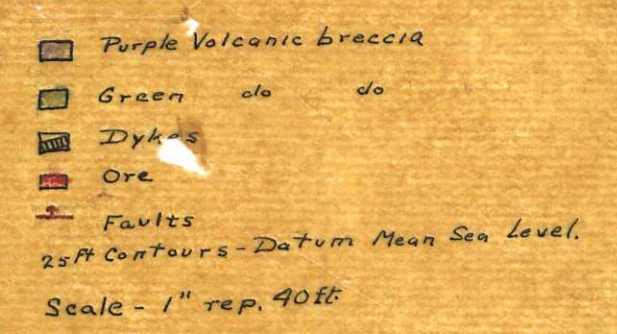 Purple Volcanic breccia
Green do do
Dykes
Ore
Faults
25ft Contours - Datum Mean Sea Level.
Scale - 1" rep. 40ft.